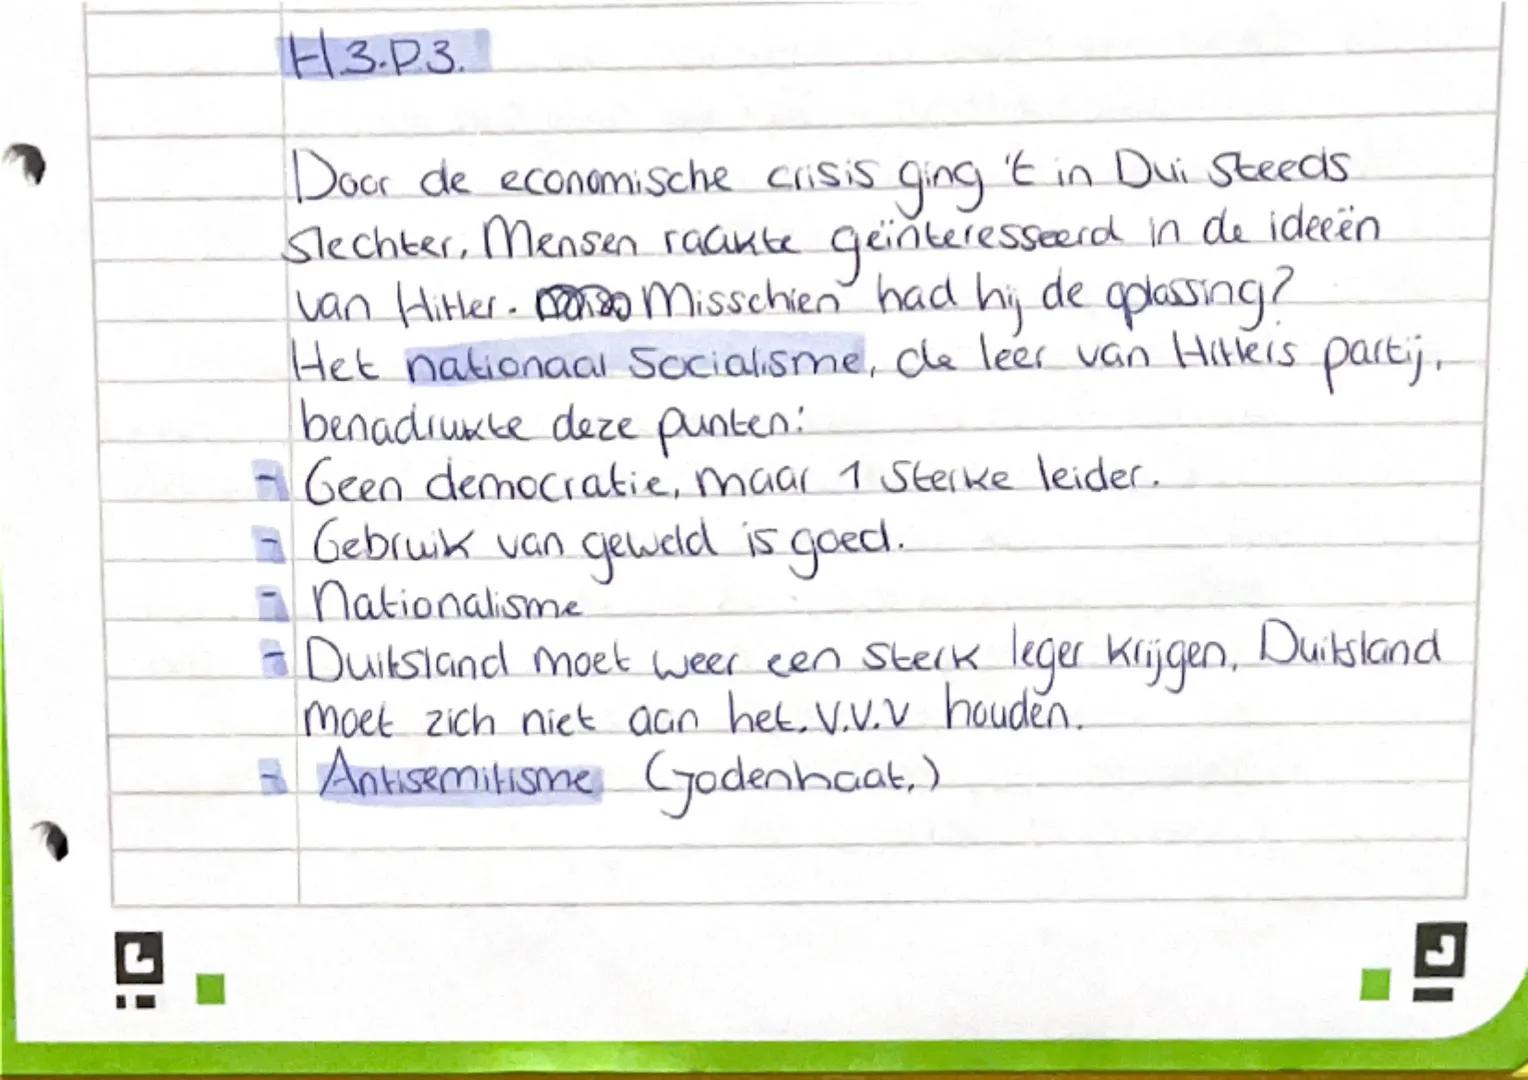 H3.P3.
Door de economische crisis ging 't in Dui steeds
slechter. Mensen raakte geïnteresseerd in de ideeën
van Hitler. Misschien had hij de oplossing?
Het nationaal Socialisme, de leer van Hitlers partij,
benadrukte deze punten:
- Geen democratie, maar 1 sterke leider.
- Gebruik van geweld is goed.
- nationalisme
- Duitsland moet weer een sterk leger krijgen, Duitsland
moet zich niet aan het V.V.V houden.
- Antisemitisme (Jodenhaat,)